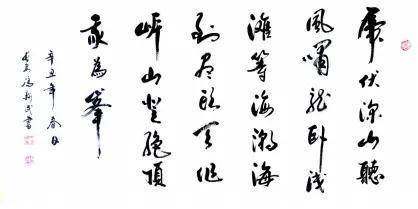 虎伏深山聽
風嘯龍卧淺
灘等海潮海
到盡頭天作
岸山登絶頂
我為峯
辛丑年春日
書